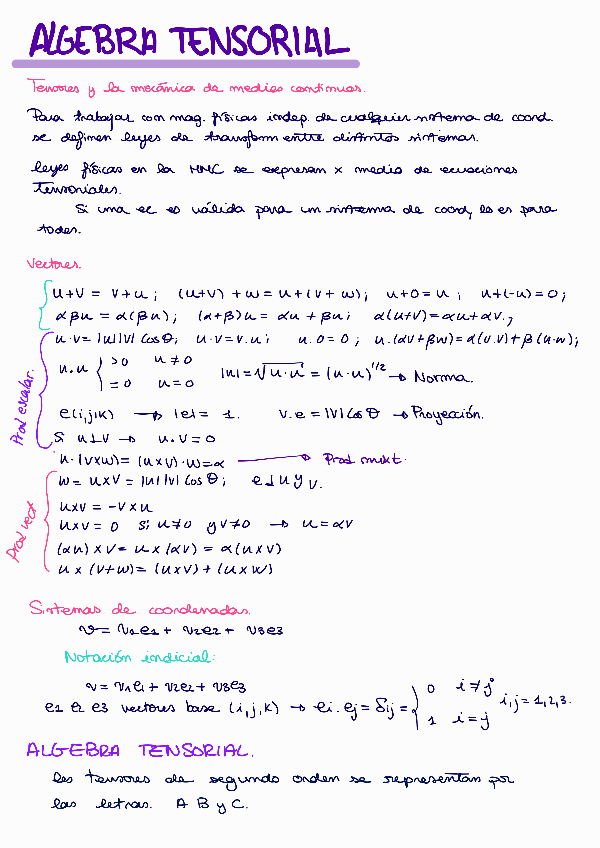 ALGEBRA TENSORIAL
Tensores y la mecánica de medios continuos.
Para trabajar con mag. físicas indep. de cualquier sistema de coord.
se definen leyes de transform entre distintos sistemas.
Leyes físicas en la MMC se expresan x medio de ecuaciones
tensoriales.
Si una ec es válida para un sistema de coord, lo es para
todos.
Vectores.
u+v = v+u ; (u+v) + w = u+(v+w); u+0 = u ; u+(-u) = 0;
αβu = α(βu); (α+β)u = αu + βu; α(u+v)=αu+αv.;
Prod escalar.
u·v = |u||v| cosθ; u·v = v.u; u.0=0; u.(αv+βw)=α(u.v)+β(u·w);
u.u { >0 u≠0
=0 u=0
|u| = √u·u = (u·u)^1/2 → Norma.
e(i,j,k) → |e| = 1. v.e = |v|cosθ → Proyección.
Si u⊥v → u.v=0
u·(vxw)= (uxv)·w=α → Prod mixt.
Prod vect
w = uxv = |u||v| cosθ; e⊥u y v.
uxv = -v x u
uxv = 0 si u≠0 y v≠0 → u=αv
(αu) x v = u x (αv) = α(uxv)
u x (v+w)= (uxv) + (uxw)
Sistemas de coordenadas.
v = v1e1 + v2e2 + v3e3
Notación indicial:
v = v1e1 + v2e2 + v3e3
e1 e2 e3 vectores base (i,j,k) → ei.ej = δij = { 0 i≠j
1 i=j
i,j = 1,2,3.
ALGEBRA TENSORIAL.
Los tensores de segundo orden se representan por
las letras. A B y C.